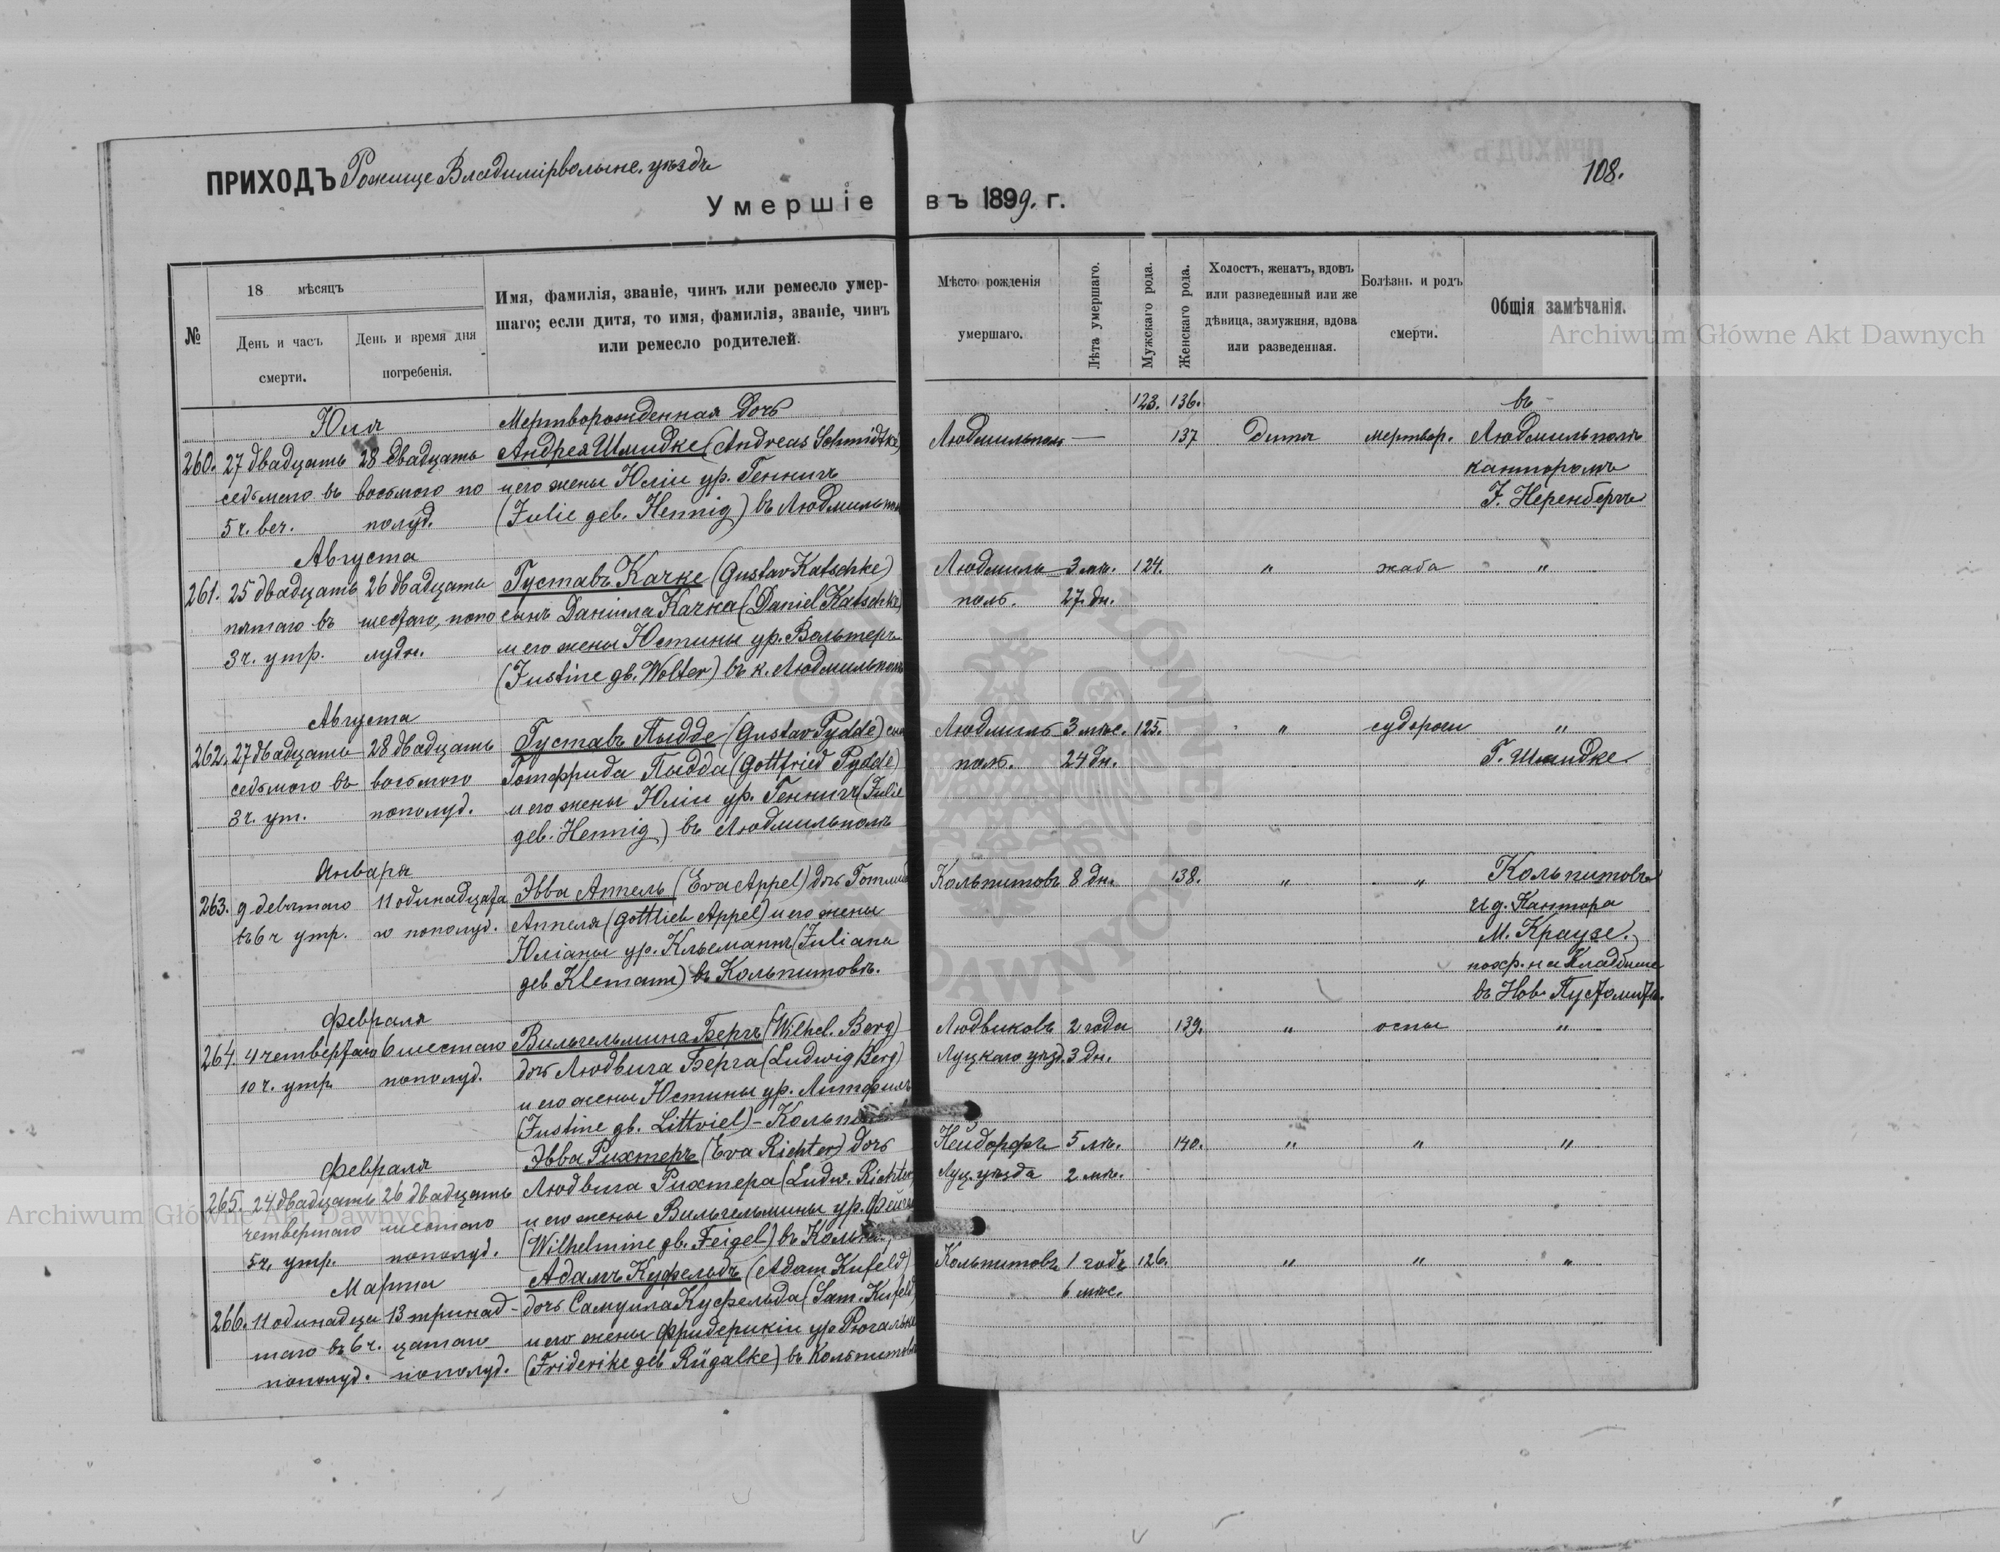 ПРИХОДЪ Рожище Владимірволынс. уѣздъ
108.
Умершіе въ 1899. г.
№
18 мѣсяцъ
День и часъ смерти.
День и время дня погребенія.
Имя, фамилія, званіе, чинъ или ремесло умер-
шаго; если дитя, то имя, фамилія, званіе, чинъ
или ремесло родителей.
Мѣсто рожденія
умершаго.
Лѣта умершаго.
Мужскаго рода.
Женскаго рода.
Холостъ, женатъ, вдовъ
или разведенный или же
дѣвица, замужняя, вдова
или разведенная.
Болѣзнь и родъ
смерти.
Общія замѣчанія.
Archiwum Główne Akt Dawnych
123. 136. въ
Юля Мертворожденная дочь
260. 27 двадцать 28 двадцать Андрея Шмидке (Andreas Schmidtke) Людмильполь — 137 Дитя мертвор. Людмильполѣ
седьмаго въ восьмого по и его жены Юліи ур. Геннигъ канторомъ
5 ч. веч. полуд. (Julie geb. Hennig) въ Людмильпол Ф. Неренбергъ
Августа
261. 25 двадцать 26 двадцать Густавъ Качке (Gustav Katschke) Людмиль 3 мѣ. 124. " жаба "
пятаго въ шестаго, попо сынъ Даніила Качка (Daniel Katschke) полъ. 27 дн.
3 ч. утр. лудн. и его жены Юстины ур. Вольтеръ
(Justine gb. Wolter) въ к. Людмильполѣ
Августа
262. 27 двадцать 28 двадцать Густавъ Пыдде (Gustav Pydde) сын Людмиль 3 мѣс. 125. " судороги "
седьмого въ восьмого Готфрида Пыдда (Gottfried Pydde) полъ. 24 дн. Г. Шмидке
3 ч. ут. пополуд. и его жены Юліи ур. Геннигъ (Julie
geb. Hennig) въ Людмильполѣ
Января
263. 9 девятаго 11 одинадцата Эвва Аппель (Eva Appel) дочь Готлиба Кольпитовъ 8 дн. 138. " " Кольпитовъ
въ 6 ч утр. го пополуд. Аппеля (Gottlieb Appel) и его жены И д. Кантора
Юліаны ур. Клеманнъ (Juliana М. Краузе.
geb Klemann) въ Кольпитовѣ. похр. на Кладбище
въ Нов. Пустомит.
Февраля
264. 4 четвертаго 6 шестаго Вильгельмина Бергъ (Wilhel. Berg) Людвиковъ 2 года 139. " оспы "
10 ч. утр. пополуд. дочь Людвига Берга (Ludwig Berg) Луцкаго уѣзд. 3 дн.
и его жены Юстины ур. Литфиль
(Justine gb. Littviel) - Кольпи
Февраля Эвва Рихтеръ (Eva Richter) дочь Нейдорфъ 5 лѣ. 140. " " "
265. 24 двадцать 26 двадцать Людвига Рихтера (Ludw. Richter) Луц. уѣзда 2 мѣ.
четвертаго шестаго и его жены Вильгельмины ур. Фейгел
5 ч. утр. пополуд. (Wilhelmine gb. Feigel) въ Кольпи
Марта Адамъ Куфельдъ (Adam Kufeld) Кольпитовъ 1 годъ 126. " " "
266. 11 одинадца 13 тринад- дочь Самуила Куфельда (Sam. Kufeld) 6 мѣс.
таго въ 6 ч. цатаго и его жены Фридерикіи ур Рюгальке
пополуд. пополуд. (Friderike geb Rügalke) въ Кольпитовѣ
Archiwum Główne Akt Dawnych